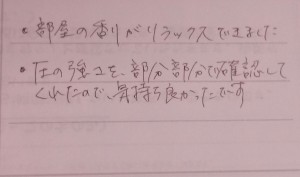 ・部屋の香りがリラックスできました
・圧の強さを、部分部分で確認して
くれたので、気持ち良かったです